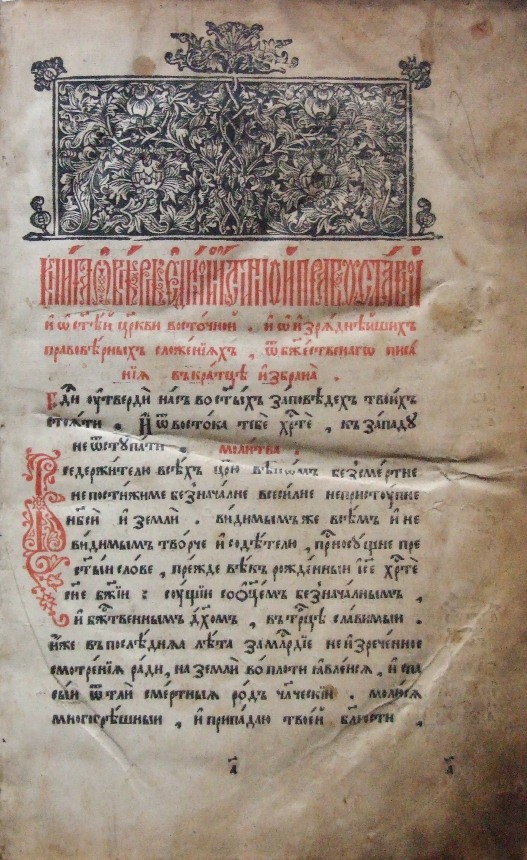 Книга ѡ вѣрѣ єдиной истинной православной
и ѡ ст҃ѣй цр҃кви восточной . и ѡ изрѧднѣйшихъ
правовѣрныхъ сложенїѧхъ , ѿ бж҃ественагѡ писа
нїѧ въкратцѣ избрана .
Гд҇и ѹтверди насъ во ст҃ыхъ заповѣдехъ твоихъ
стоѧти . И ѿ востока тебе хр҇те , къ западу
не ѿступати . молитва .
Вседержителю всѣхъ цр҃ю вѣкѡмъ безсмертне
непостижиме безначалне всесилне неприступне
нб҃сей и земли . видимымъже всѣмъ и не
видимымъ творче и содѣтелю , присносущне пре
ст҃ыи слове , прежде вѣкъ рожденныи іс҃е хр҇те
сн҃е бж҃їи : сущїи соѻц҃емъ безначалнымъ ,
и бж҇твеннымъ дх҃омъ , въ трⷪ҇цѣ славимыи .
иже въпослѣднѧѧ лѣта замлⷭ҇рдїе неизреченное
смотренїѧ ради , на земли воплоти ꙗвлейсѧ , и спа
сыи ѿ тли смертныѧ родъ чл҃ческїи . молюсѧ
многогрѣшныи , и припадаю твоей блг҇ости ,
а҃ а҃